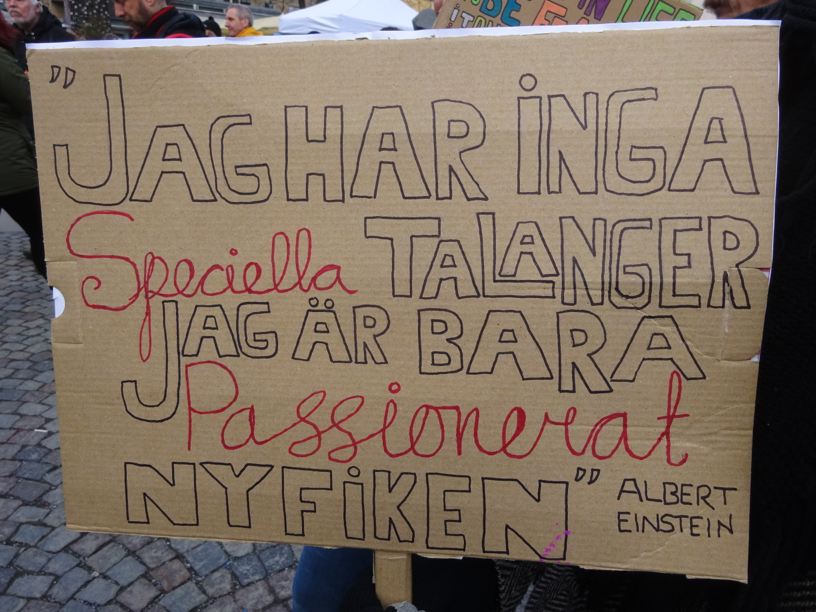 ”JAG HAR iNGA
Speciella TALANGER
JAG ÄR BARA
Passionerat
NYFiKEN”
ALBERT
EINSTEIN